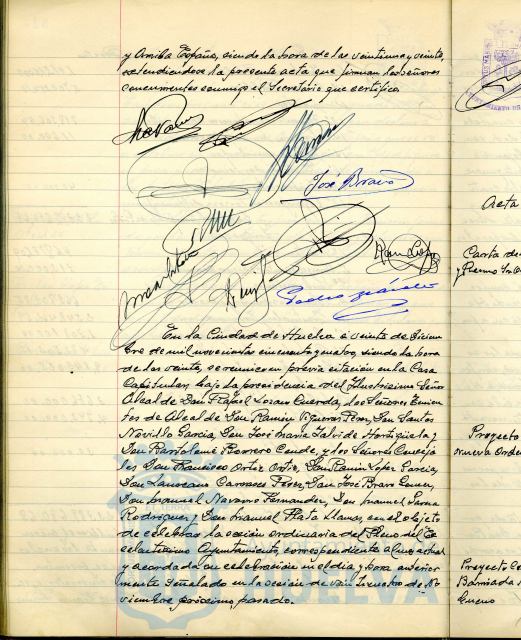 y Arriba España, siendo la hora de las veintiuna y veinte,
extendiéndose la presente acta que firman los señores
concurrentes conmigo el Secretario que certifico.
José Bravo
Ramon Lopez
Pedro
En la Ciudad de Huelva a veinte de Diciem
bre de mil novecientos cincuenta y cuatro, siendo la hora
de las veinte, se reunieron previa citación en la Casa
Capitular, bajo la presidencia del Ilustrisimo Señor
Alcalde Don Rafael Lozano Cuerda, los Señores Tenien
tes de Alcalde Don Ramón Figueroa Perez, Don Santos
Novillo Garcia, Don José Maria Jalvi de Hortigüela y
Don Bartolomé Romero Conde, y los Señores Conceja
les Don Francisco Ortiz Ortiz, Don Ramón Lopez Garcia,
Don Laureano Carrasco Perez, Don José Bravo
Don Manuel Navarro Fernandez, Don Manuel
Rodriguez y Don Manuel Plata Llanes, con el objeto
de celebrar la sesión ordinaria del Pleno del Ex
celentisimo Ayuntamiento, correspondiente al mes actual
y acordada su celebración en el dia y hora anterior
mente señalado en la sesión de veintinueve de No
viembre próximo pasado.
HUELVA
Acta
Carta de
Proyecto
Nueva Orden
Proyecto
Barriada